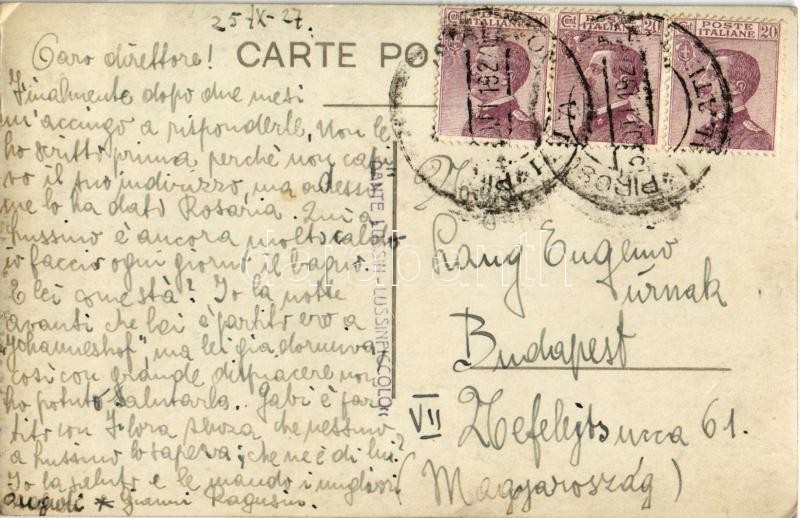 25/IX-27.
Caro direttore!
CARTE POS
Finalmente dopo due mesi
m'accingo a risponderle, Non le
ho scritto prima perchè non sape
vo il suo indirizzo, ma adesso
me lo ha dato Rosaria. Qui a
Lussino è ancora molto caldo
io faccio ogni giorno il bagno.
E lei come stà? Io la notte
avanti che lei è partito ero a
"Johanneshof", ma lei già dormiva
così con grande dispiacere non
ho potuto salutarla. Gabi è par
tito con Flora senza che nessuno
a Lussino lo sapeva; che ne è di lui?
Io la saluto e le mando i migliori
auguri * Gianni Ragusin
DANTE LUSSIN-LUSSINPICCOLO
POSTE ITALIANE
Cent 20
POSTE ITALIANE
20
POSTE ITALIANE
20
PIROSCAFO
Lang Eugenio
úrnak
Budapest
VII Nefelejts ucca 61.
(Magyarország)
darabanth